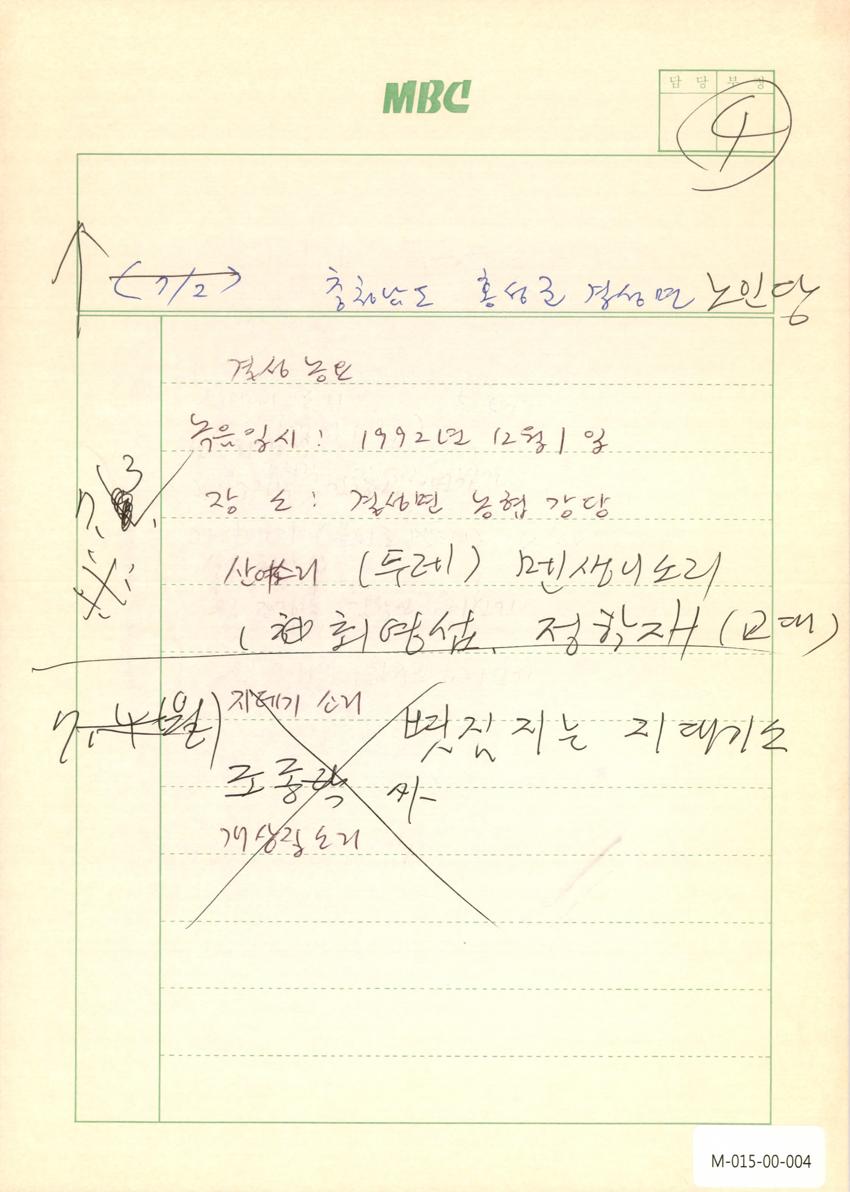 MBC
담당 부장
4
(7/2) 충청남도 홍성군 결성면 노인당
결성농요
녹음일시: 1992년 12월 1일
7. 3.
장 소: 결성면 농협 강당
산여소리 (두레) 멘생이소리
( 최영섭, 정학재 (교대)
7. 4 (월) 지데기 소리 볏짐 지는 지대기소
조종락 사
개상질소리
M-015-00-004